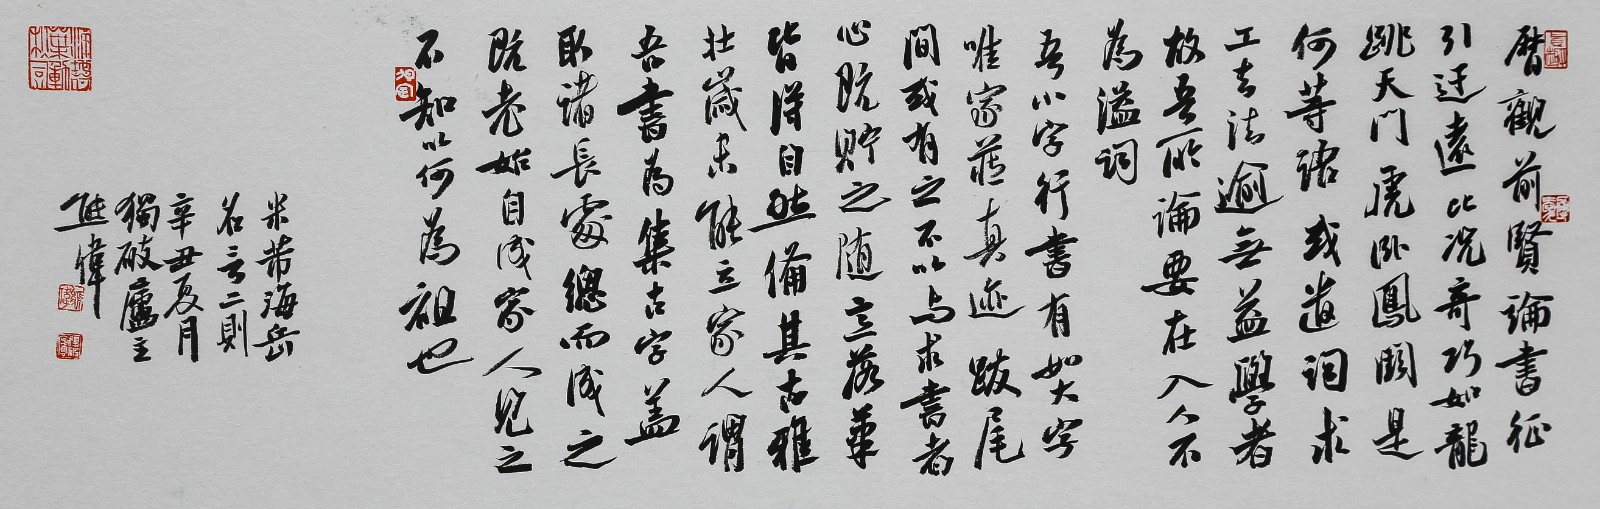 曆觀前賢論書征
引迂遠比況奇巧如龍
跳天門虎臥鳳闕是
何等語或遣詞求
工去法逾無益學者
故吾所論要在入人不
為溢詞
吾小字行書有如大字
唯家藏真迹跋尾
間或有之不以与求書者
心既貯之随意落筆
皆得自然備其古雅
壯歲未能立家人謂
吾書為集古字盖
取諸長處總而成之
既老始自成家人見之
不知以何為祖也
米芾海岳
名言二則
辛丑夏月
獨破廬主
熊偉